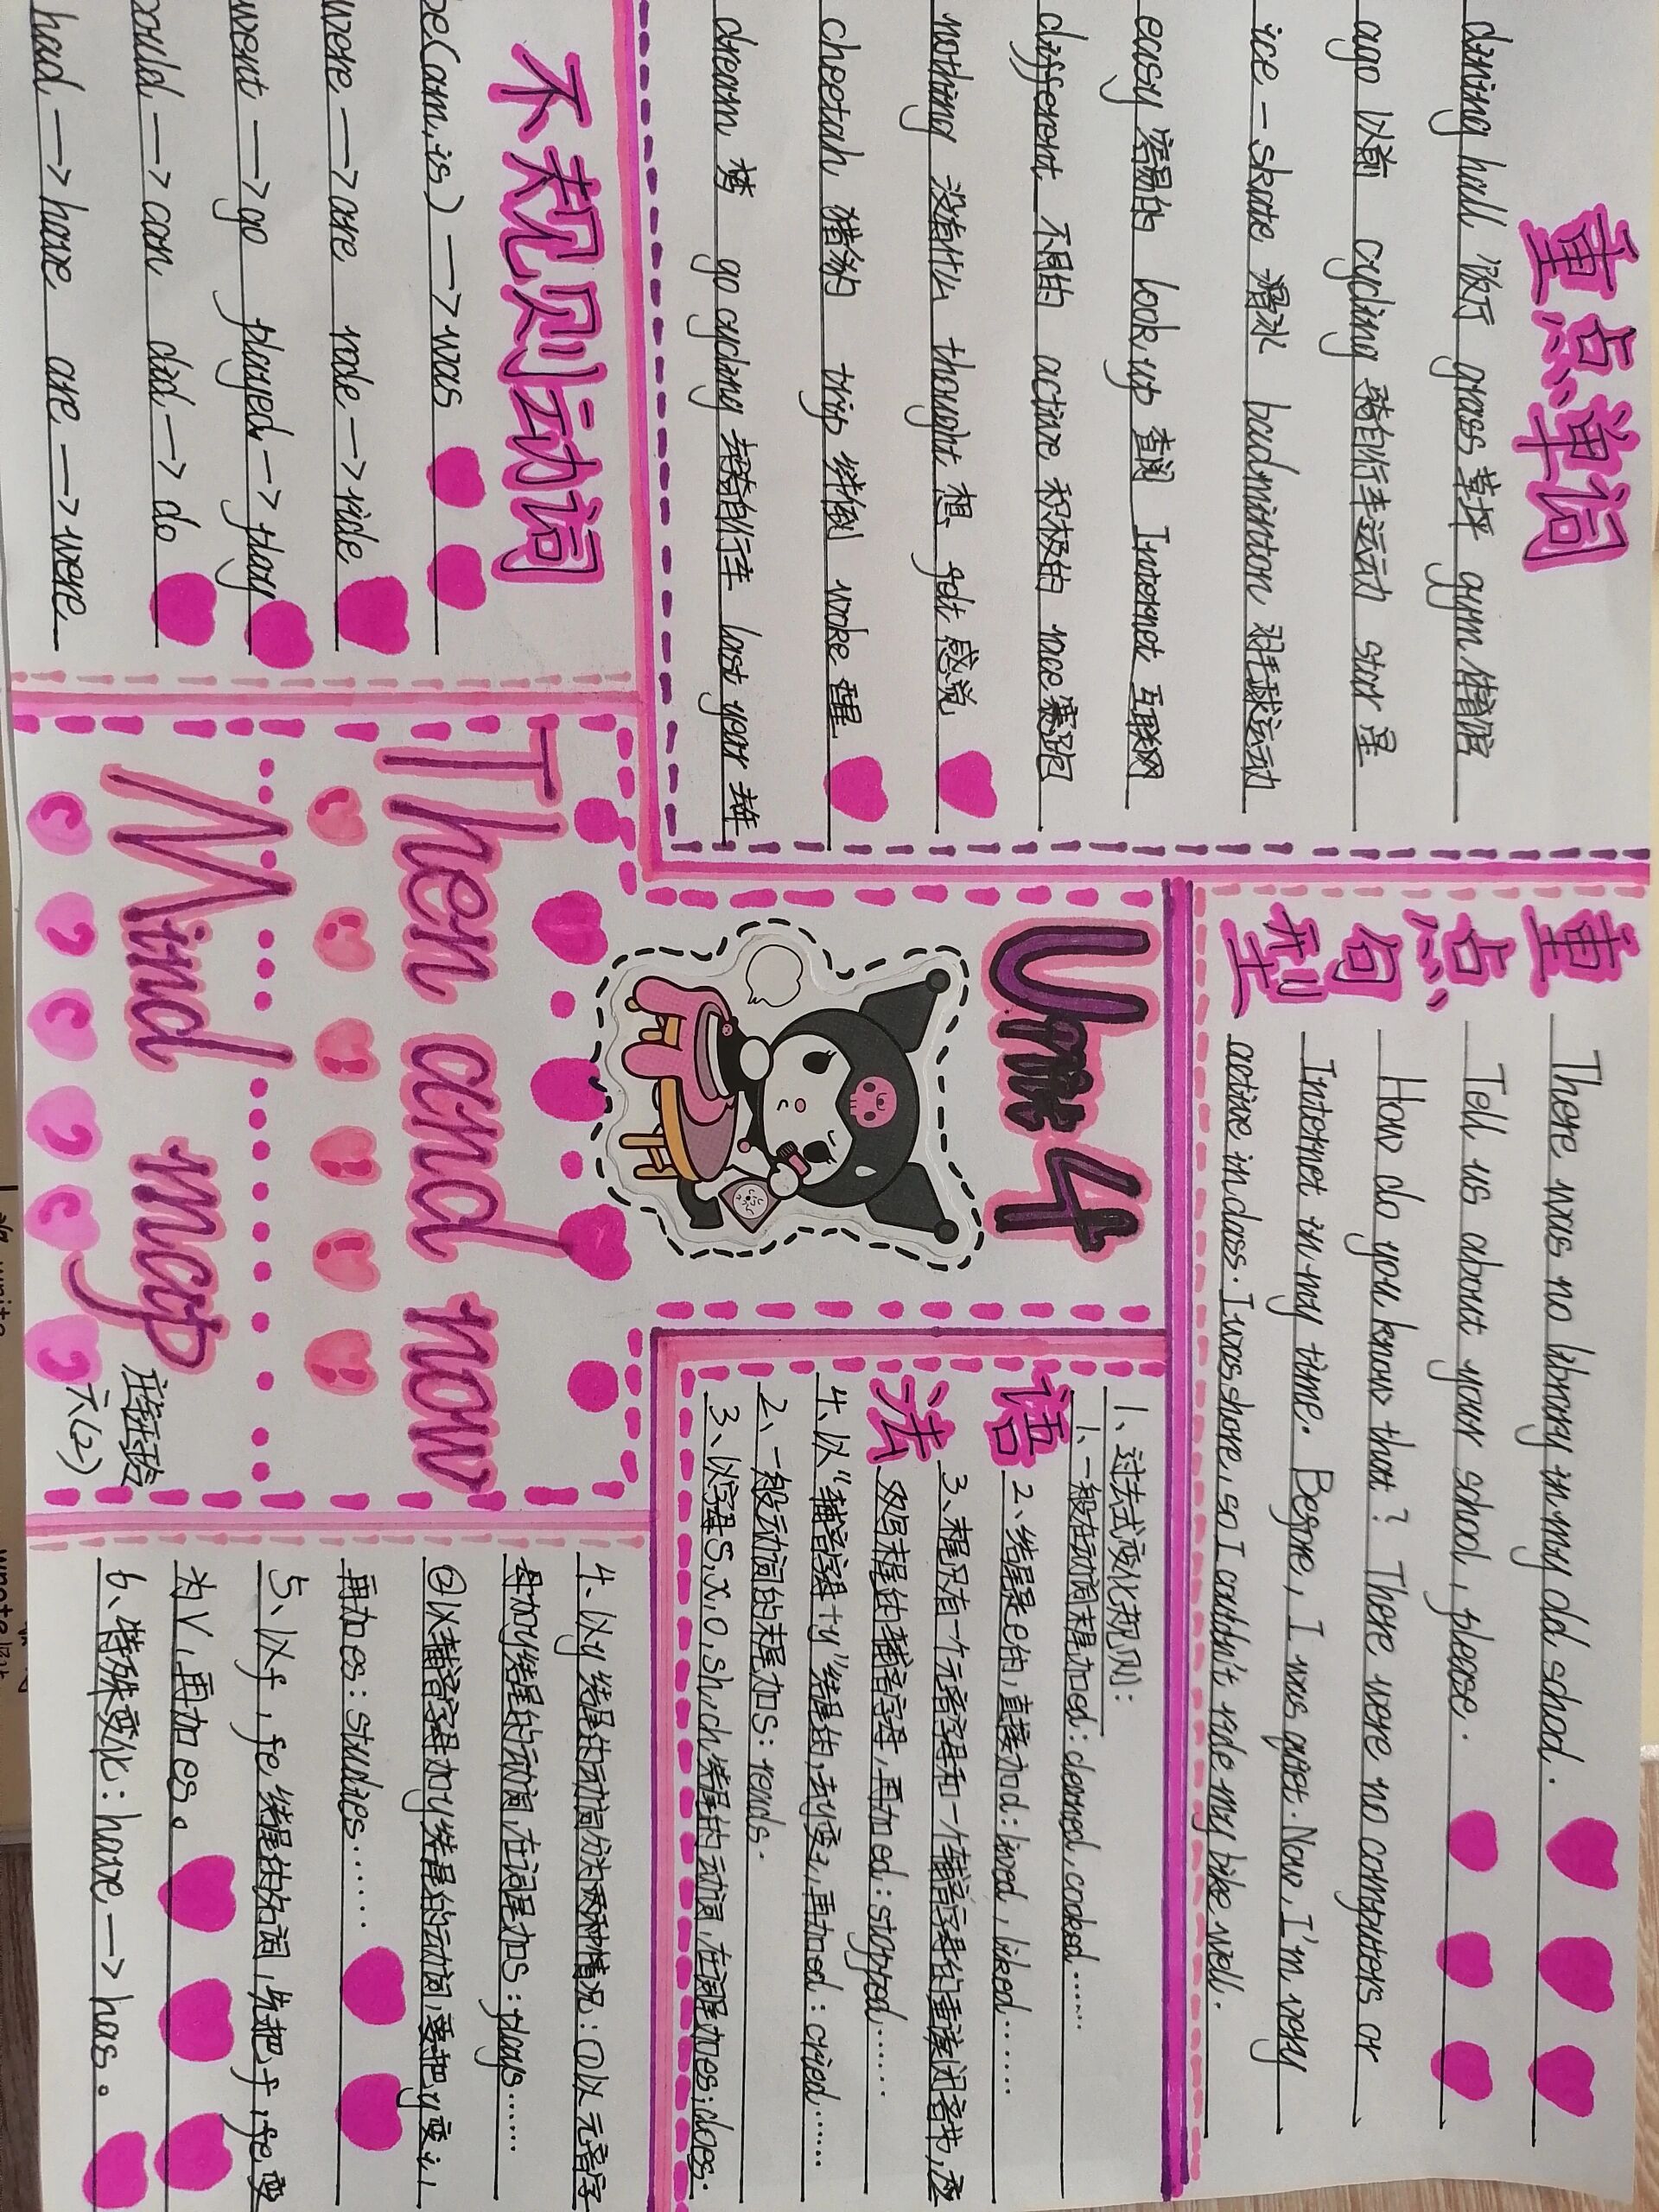 重点单词
dining hall 饭厅 grass 草坪 gym 体育馆
ago 以前 cycling 骑自行车运动 star 星
ice-skate 滑冰 badminton 羽毛球运动
easy 容易的 look up 查阅 Internet 互联网
different 不同的 active 积极的 race 赛跑
nothing 没有什么 thought 想 felt 感觉
cheetah 猎豹 trip 绊倒 woke 醒
dream 梦 go cycling 去骑自行车 last year 去年
不规则动词
be(am,is) —> was
were —> are rode —> ride
went —> go played —> play
could —> can did —> do
had —> have are —> were
重点句型
There was no library in my old school.
Tell us about your school, please.
How do you know that? There were no computers or
Internet in my time. Before, I was quiet. Now, I'm very
active in class. I was shore, so I couldn't ride my bike well.
Unit 4
Then and now
Mind map
六(2)
语法
1、过去式变化规则:
1、一般在动词末尾加ed: cleaned, cooked……
2、结尾是e的,直接加d: lived, liked……
3、末尾只有一个元音字母和一个辅音字母的重读闭音节,应
双写末尾的辅音字母,再加ed: stopped……
4、以"辅音字母+y"结尾的,去y变i,再加ed: cried……
2、一般动词的末尾加s: reads.
3、以字母s,x,o,sh,ch结尾的动词,在词尾加es: does.
4、以y结尾的动词分为两种情况:①以元音字
母加y结尾的动词,在词尾加s: plays……
②以辅音字母加y结尾的动词,要把y变i,
再加es: studies……
5、以f,fe结尾的名词,先把f,fe变
为v,再加es。
6、特殊变化: have —> has。